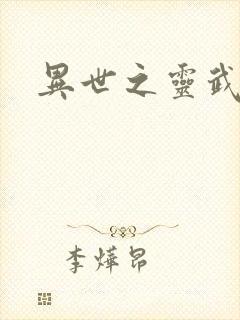 異世之靈武
李燁昂